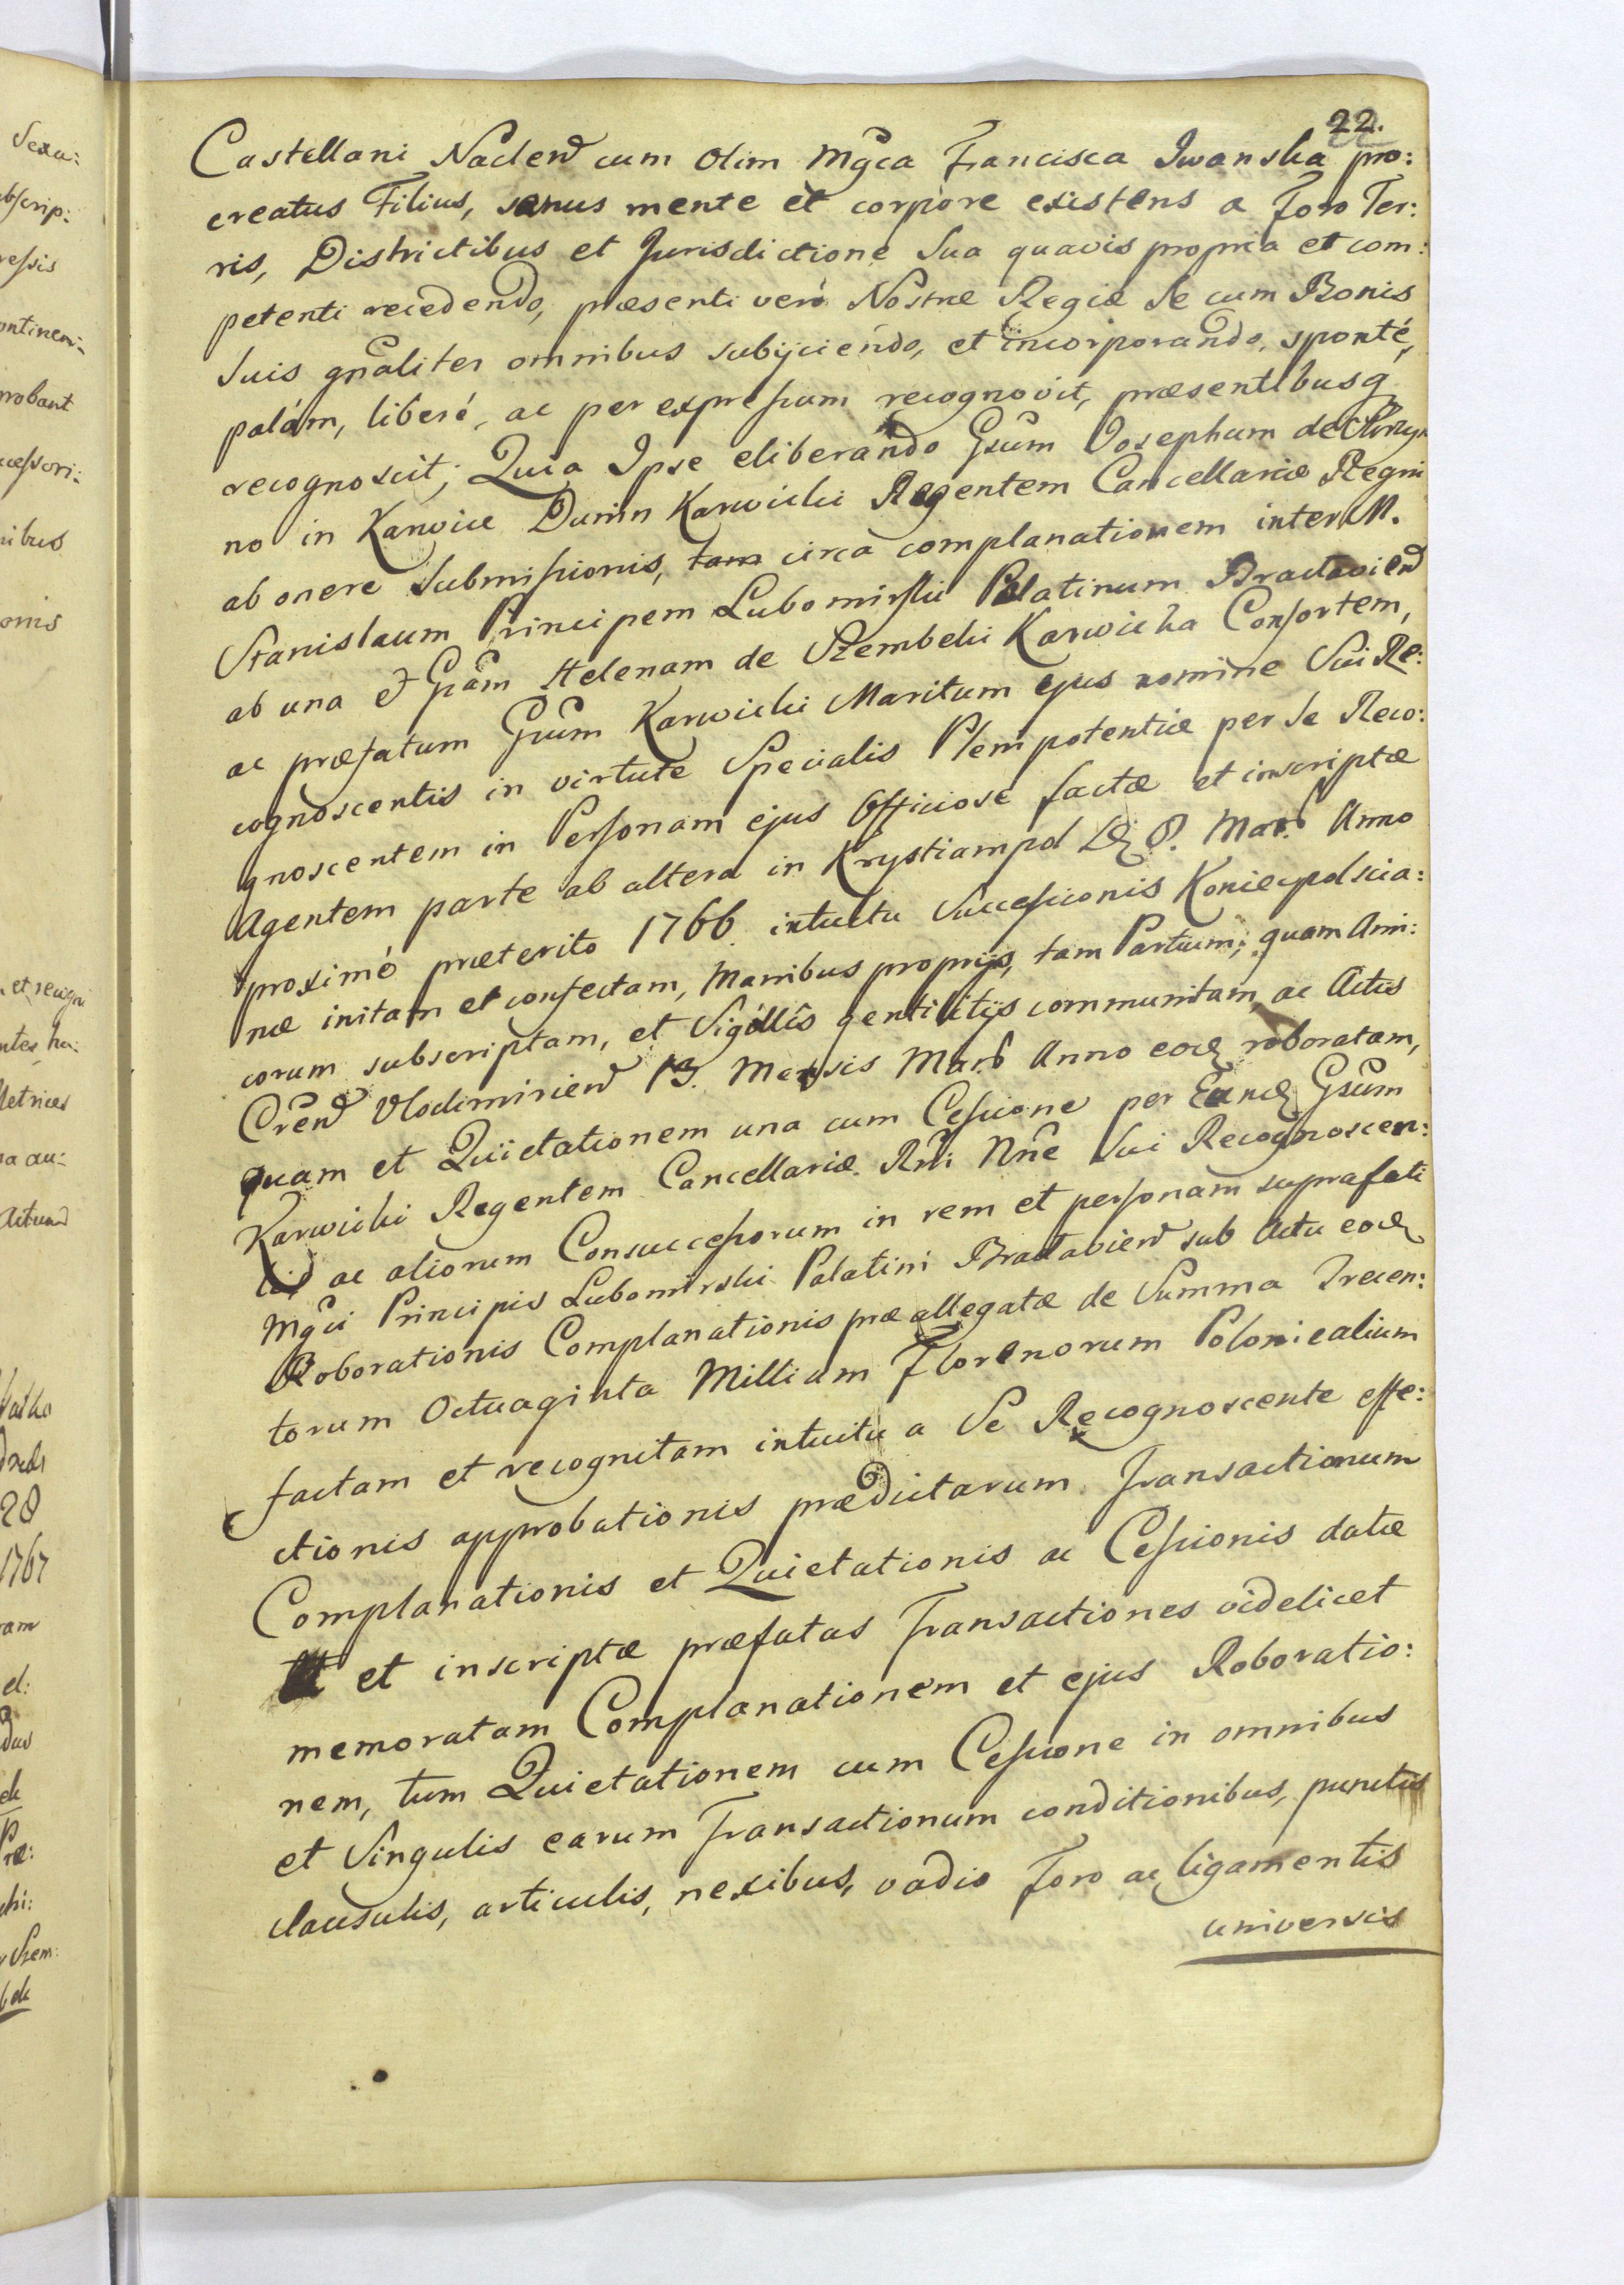 22.
Castellani Naclen cum Olim Mgca Francisca Iwanska pro:
creatus Filius, sanus mente et corpore existens a Foro Ter:
ris, Districtibus et Jurisdictione Sua quavis propria et com:
petenti recedendo, præsenti veró Nostræ Regiæ Se cum Bonis
Suis gnaliter omnibus subijciendo, et incorporando, sponté,
palám, liberé, ac per expressum recognovit, præsentibusq
recognoscit; Quia Ipse eliberando Gsum Josephum de
no in Karwice Dunin Karwicki Regentem Cancellariæ Regni
ab onere Submissionis, tam circa complanationem inter M.
Stanislaum Principem Lubomirski Palatinum Braclavien
ab una et Gsam Helenam de Szembeki Karwicka Consortem,
ac præfatum Gsum Karwicki Maritum ejus nomine Sui Re:
cognoscentis in virtute Specialis Plenipotentiæ per Se Reco:
gnoscentem in Personam ejus Officiose factæ et inscriptæ
Agentem parte ab altera in Krystiampol D. 8. Mar. Anno
proximé præterito 1766. intuitu Successionis Koniecpolscia:
næ initam et confectam, Manibus proprijs, tam Partium, quam Ami:
corum subscriptam, et Sigillis gentilitijs communitam, ac Actis
Cren Vlodimirien 13. Mensis Mar. Anno eod roboratam,
quam et Quietationem una cum Cessione per Eund Gsum
Karwicki Regentem Cancellariæ Rni Nne Sui Recognoscen:
tis ac aliorum Consuccessorum in rem et personam suprafati
Mgci Principis Lubomirski Palatini Braclavien sub Actu eod
Roborationis Complanationis præallegatæ de Summa Trecen:
torum Octuaginta Millium Florenorum Polonicalium
factam et recognitam intuitu a Se Recognoscente effe:
ctionis approbationis prædictarum Transactionum
Complanationis et Quietationis ac Cessionis datæ
et inscriptæ præfatas Transactiones videlicet
memoratam Complanationem et ejus Roboratio:
nem, tum Quietationem cum Cessione in omnibus
et Singulis earum Transactionum conditionibus, punctis
clausulis, articulis, nexibus, vadio Foro ac ligamentis
universis